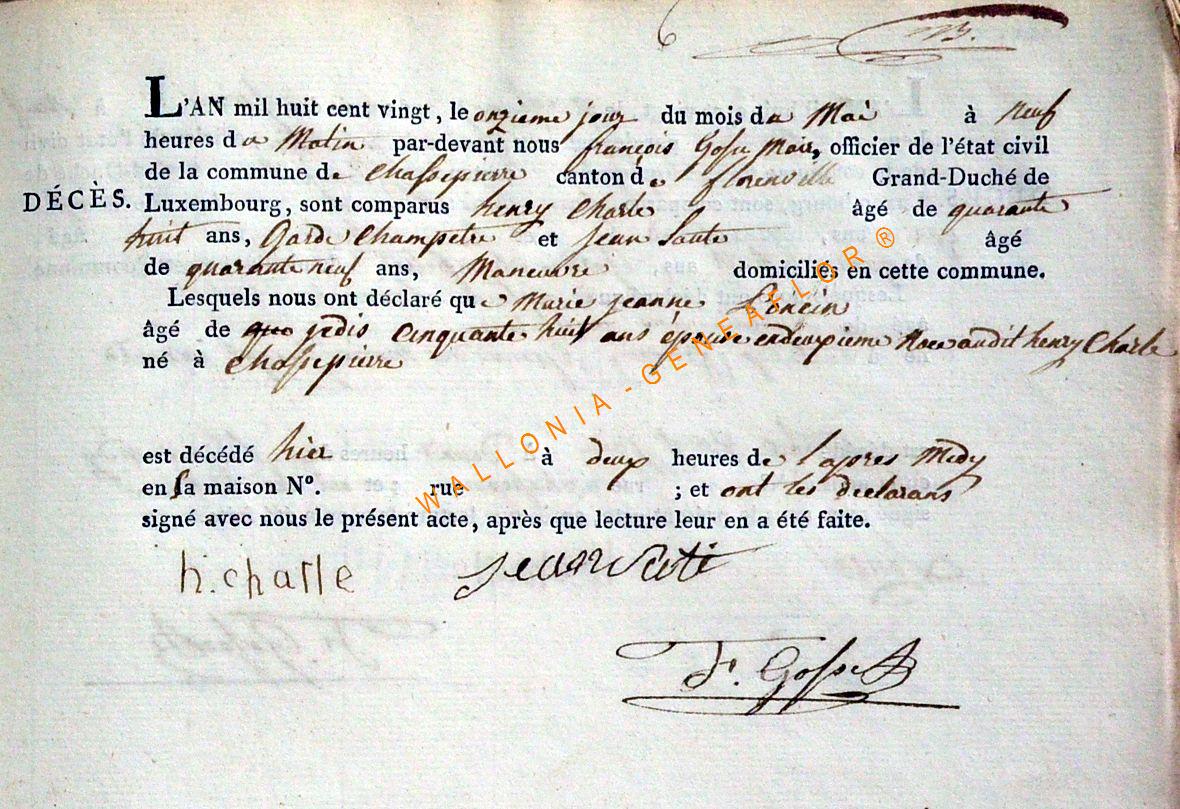 L'AN mil huit cent vingt, le onzieme jour du mois du Mai à neuf
heures du Matin par-devant nous françois Gosse Maire, officier de l'état civil
de la commune de Chassepierre canton de florenville Grand-Duché de
DÉCÈS. Luxembourg, sont comparus henry Charle âgé de quarante
huit ans, Garde Champetre et Jean Sauté âgé
de quarante neuf ans, Maneuvre domiciliés en cette commune.
Lesquels nous ont déclaré que Marie jeanne Poncin
âgé de cinquante huit ans épouse en deuxieme Noce audit henry Charle
né à Chassepierre
est décédé hier à deux heures de l'apres Midy
en sa maison N°. rue ; et ont les declarans
signé avec nous le présent acte, après que lecture leur en a été faite.
h. charle Jean Sauté
f. Gosse
WALLONIA - GENEAFLOR ®